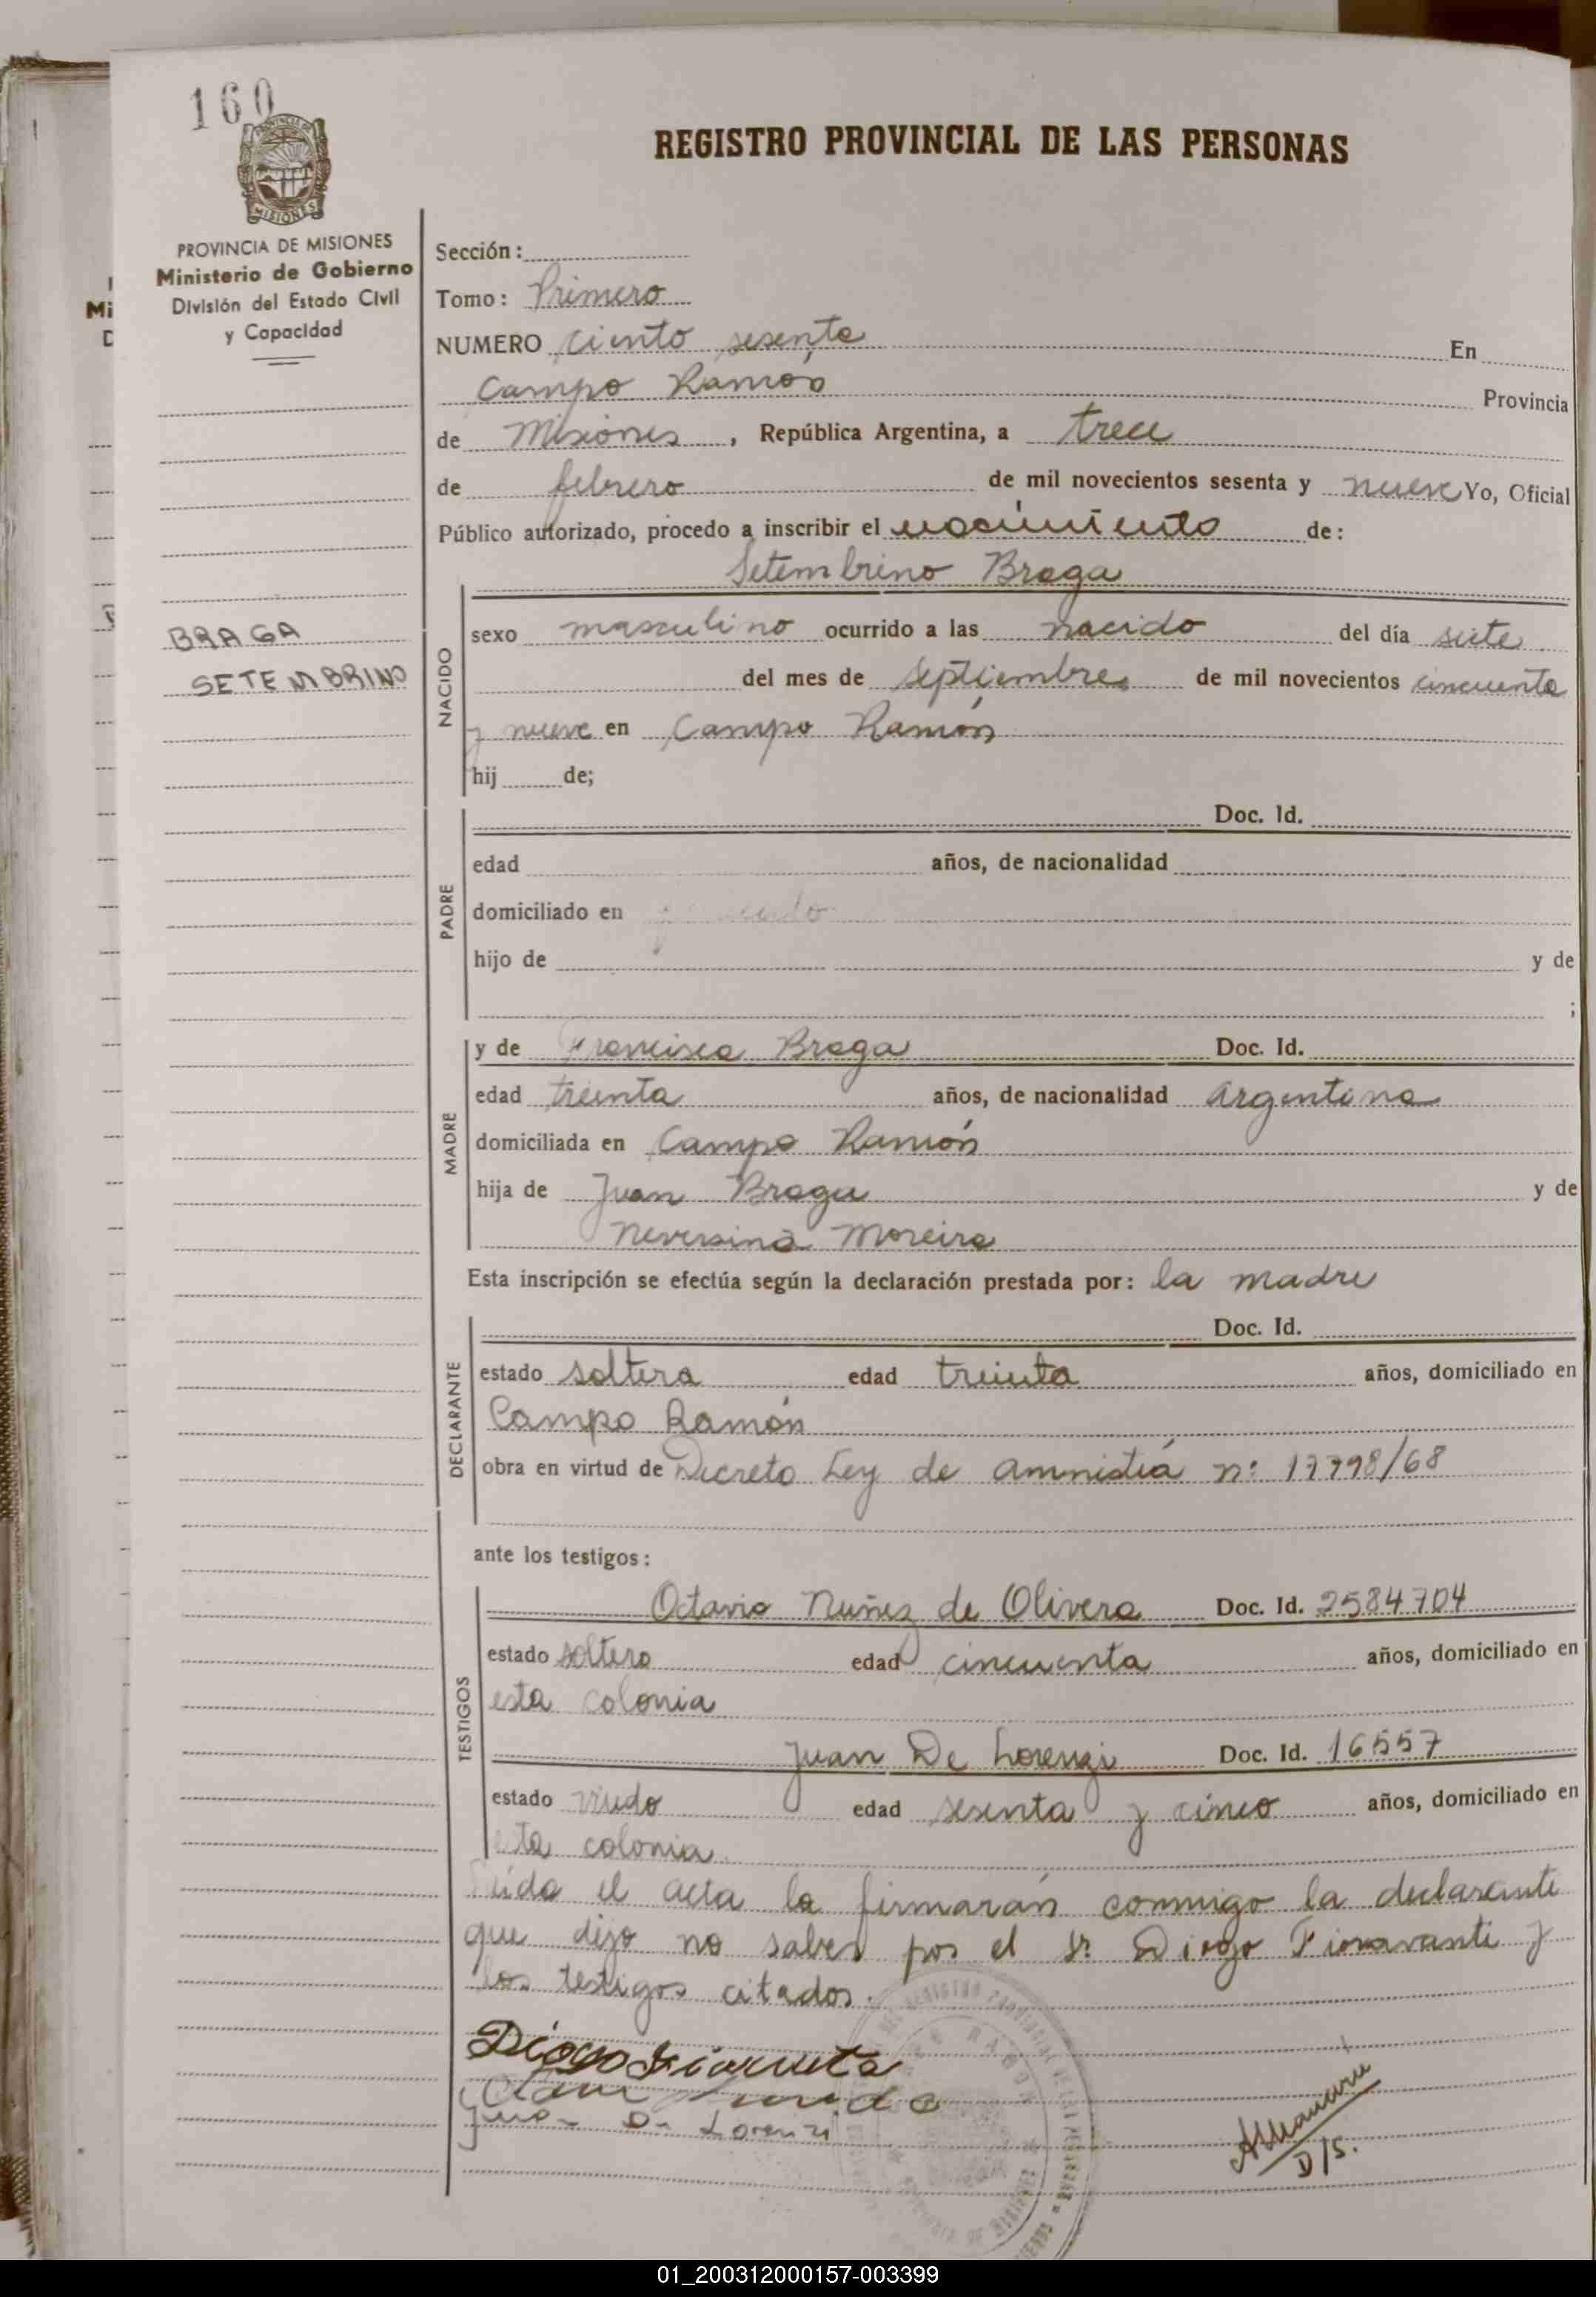 160
REGISTRO PROVINCIAL DE LAS PERSONAS
PROVINCIA DE MISIONES
Ministerio de Gobierno
División del Estado Civil
y Capacidad
Sección:
Tomo: Primero
NUMERO ciento sesenta En
Campo Ramón Provincia
de Misiones, República Argentina, a trece
de febrero de mil novecientos sesenta y nueve Yo, Oficial
Público autorizado, procedo a inscribir el nacimiento de:
Setembrino Braga
BRAGA
SETEMBRINO
NACIDO
sexo masculino ocurrido a las nacido del día siete
del mes de septiembre de mil novecientos cincuenta
y nueve en Campo Ramón
hij de;
PADRE
Doc. Id.
edad años, de nacionalidad
domiciliado en
hijo de y de
;
MADRE
y de Francisca Braga Doc. Id.
edad treinta años, de nacionalidad argentina
domiciliada en Campo Ramón
hija de Juan Braga y de
Neversina Moreira
Esta inscripción se efectúa según la declaración prestada por: la madre
DECLARANTE
Doc. Id.
estado soltera edad treinta años, domiciliado en
Campo Ramón
obra en virtud de Decreto Ley de amnistía nº 17798/68
ante los testigos:
TESTIGOS
Octavio Nuñez de Olivera Doc. Id. 2584704
estado soltero edad cincuenta años, domiciliado en
esta colonia
Juan De Lorenzi Doc. Id. 16557
estado viudo edad sesenta y cinco años, domiciliado en
esta colonia
Leída el acta la firmarán conmigo la declarante
que dijo no saber por el Sr. Diogo Fioravanti y
los testigos citados.
Diogo
Juan De Lorenzi
D/S.
01_200312000157-003399